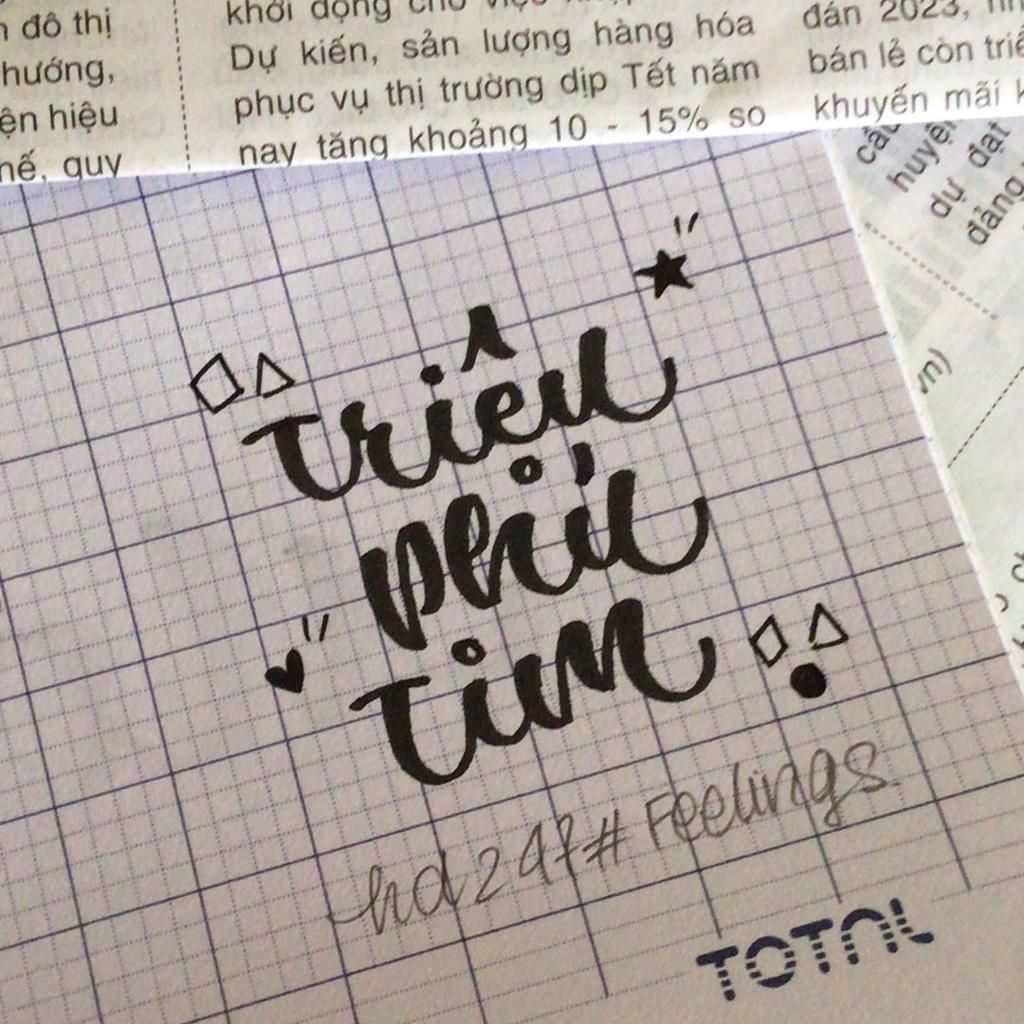 đô thị
hướng,
ện hiệu
hế, quy
khởi động cho việc
Dự kiến, sản lượng hàng hóa
phục vụ thị trường dịp Tết năm
nay tăng khoảng 10 - 15% so
đán 2023,
bán lẻ còn
khuyến mãi
huyện
dự đạt
đảng
triệu
phú
tim
hd247#Feelings
TOTAL